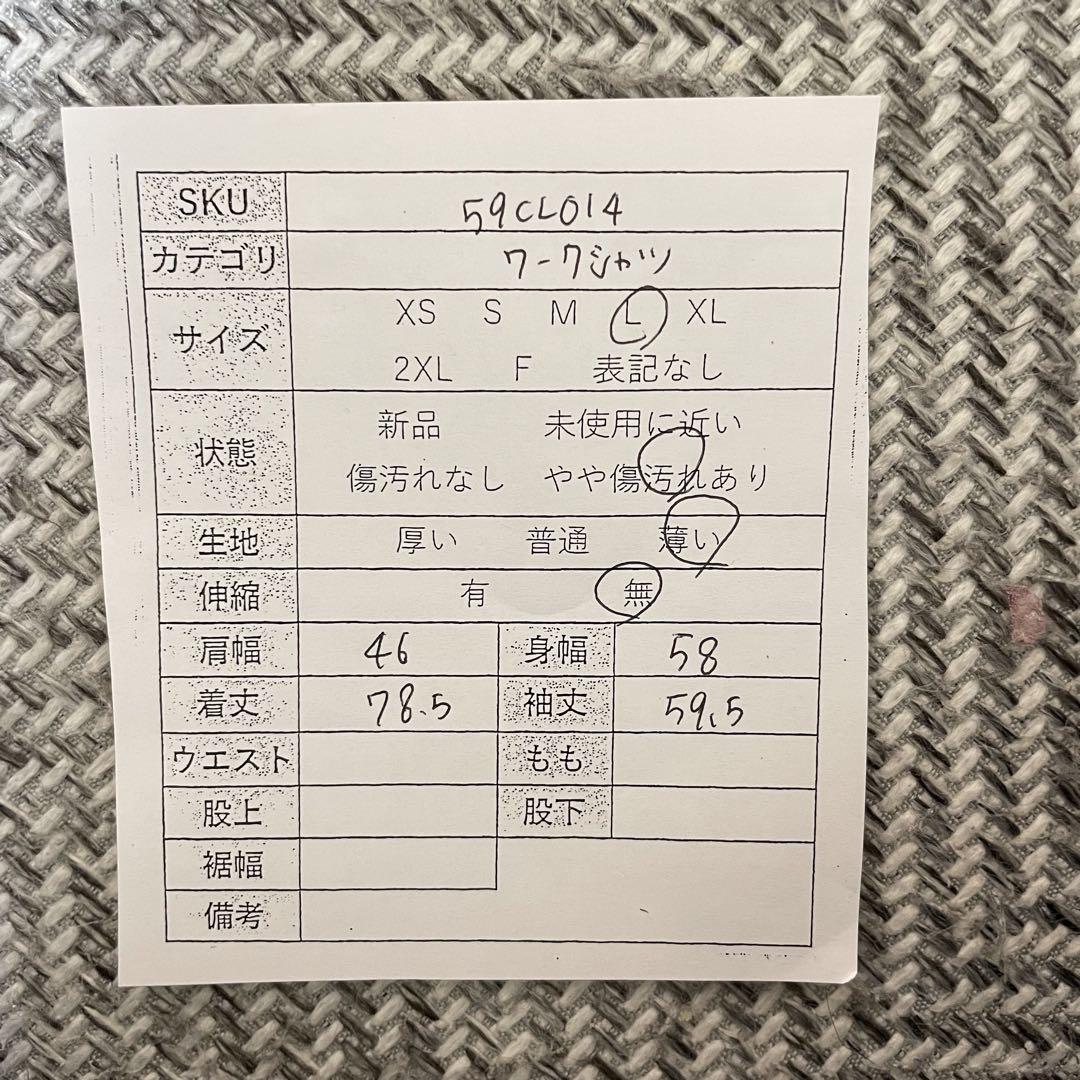 SKU 59CL014
カテゴリ ワークシャツ
サイズ XS S M L XL
2XL F 表記なし
状態 新品 未使用に近い
傷汚れなし やや傷汚れあり
生地 厚い 普通 薄い
伸縮 有 無
肩幅 46 身幅 58
着丈 78.5 袖丈 59.5
ウエスト もも
股上 股下
裾幅
備考